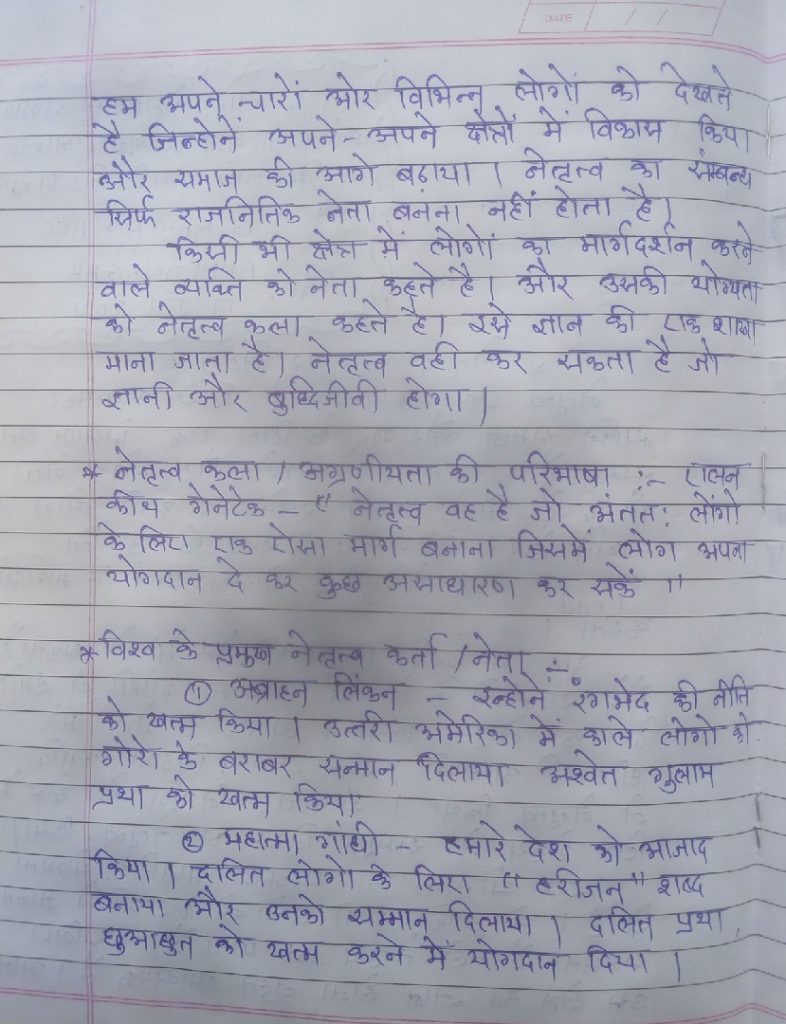 DATE
हम अपने चारों ओर विभिन्न लोगों को देखते
है जिन्होनें अपने-अपने क्षेत्रों में विकास किया
और समाज को आगे बढ़ाया | नेतृत्व का संम्बन्ध
सिर्फ राजनितिक नेता बनना नहीं होता है|
किसी भी क्षेत्र में लोगों का मार्गदर्शन करने
वाले व्यक्ति को नेता कहते है| और उसकी योग्यता
को नेतृत्व कला कहते है| इसे ज्ञान की एक शाखा
माना जाता है| नेतृत्व वही कर सकता है जो
ज्ञानी और बुध्दिजीवी होगा |
* नेतृत्व कला / अग्रणीयता की परिभाषा :- एलन
कीथ गेनेटेक - " नेतृत्व वह है जो अंतत: लोंगो
के लिए एक ऐसा मार्ग बनाना जिसमें लोग अपना
योगदान दे कर कुछ असाधारण कर सकें "
* विश्व के प्रमुख नेतृत्व कर्ता / नेता :-
① अब्राहन लिंकन - इन्होनें रंगभेद की नीति
को खत्म किया | उत्तरी अमेरिका में काले लोगो को
गोरो के बराबर सन्मान दिलाया अश्वेत गुलाम
प्रथा को खत्म किया
② महात्मा गांधी - हमारे देश को आजाद
किया | दलित लोगो के लिए " हरीजन " शब्द
बनाया और उनको सम्मान दिलाया | दलित प्रथा,
छुआछुत को खत्म करने में योगदान दिया |